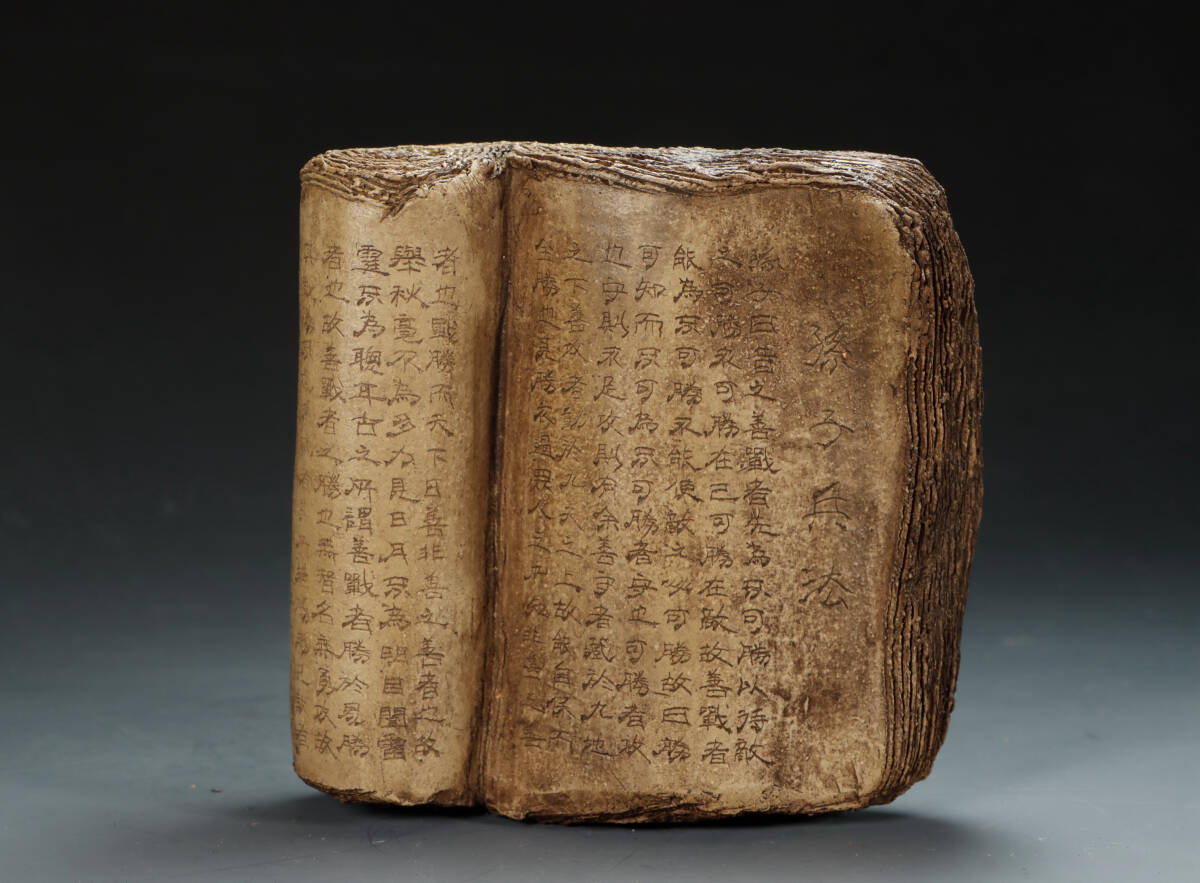 孫子兵法
孫子曰昔之善戰者先為不可勝以待敵
之可勝不可勝在己可勝在敵故善戰者
能為不可勝不能使敵之必可勝故曰勝
可知而不可為不可勝者守也可勝者攻
也守則不足攻則有余善守者藏於九地
之下善攻者動於九天之上故能自保而
全勝也見勝不過眾人之所知非善之善
者也戰勝而天下曰善非善之善者也故
舉秋毫不為多力見日月不為明目聞雷
霆不為聰耳古之所謂善戰者勝於易勝
者也故善戰者之勝也無智名無勇功故